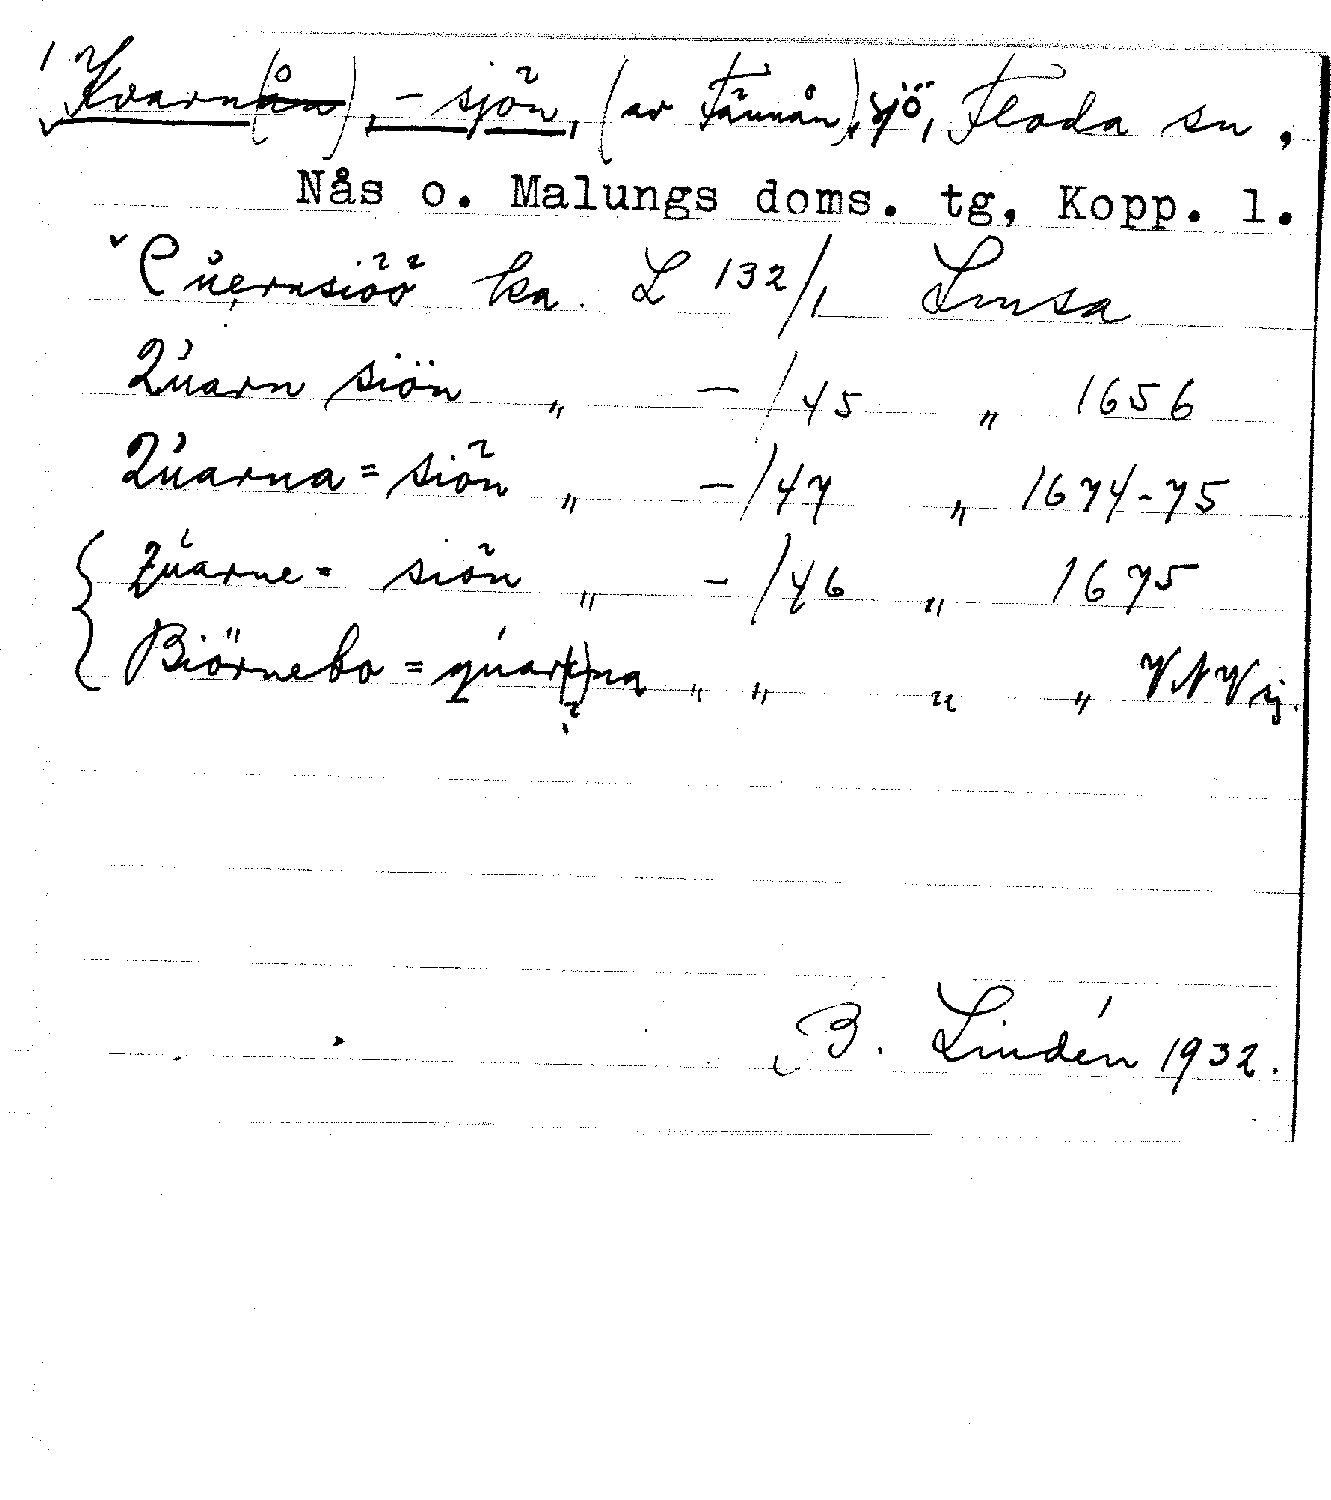 1 Kvarn(ån), -sjön, (av Tännån), sjö, Floda sn,
Nås o. Malungs doms. tg, Kopp. l.
Cuernsiöö ka. L 132/1
Quarn siön " -/45 " 1656
Quarna=siön " -/47 " 1674-75
Quarne= siön " -/46 " 1675
Biörnebo = quar(k)na " " " " VNVij.
?
B. Lindén 1932.